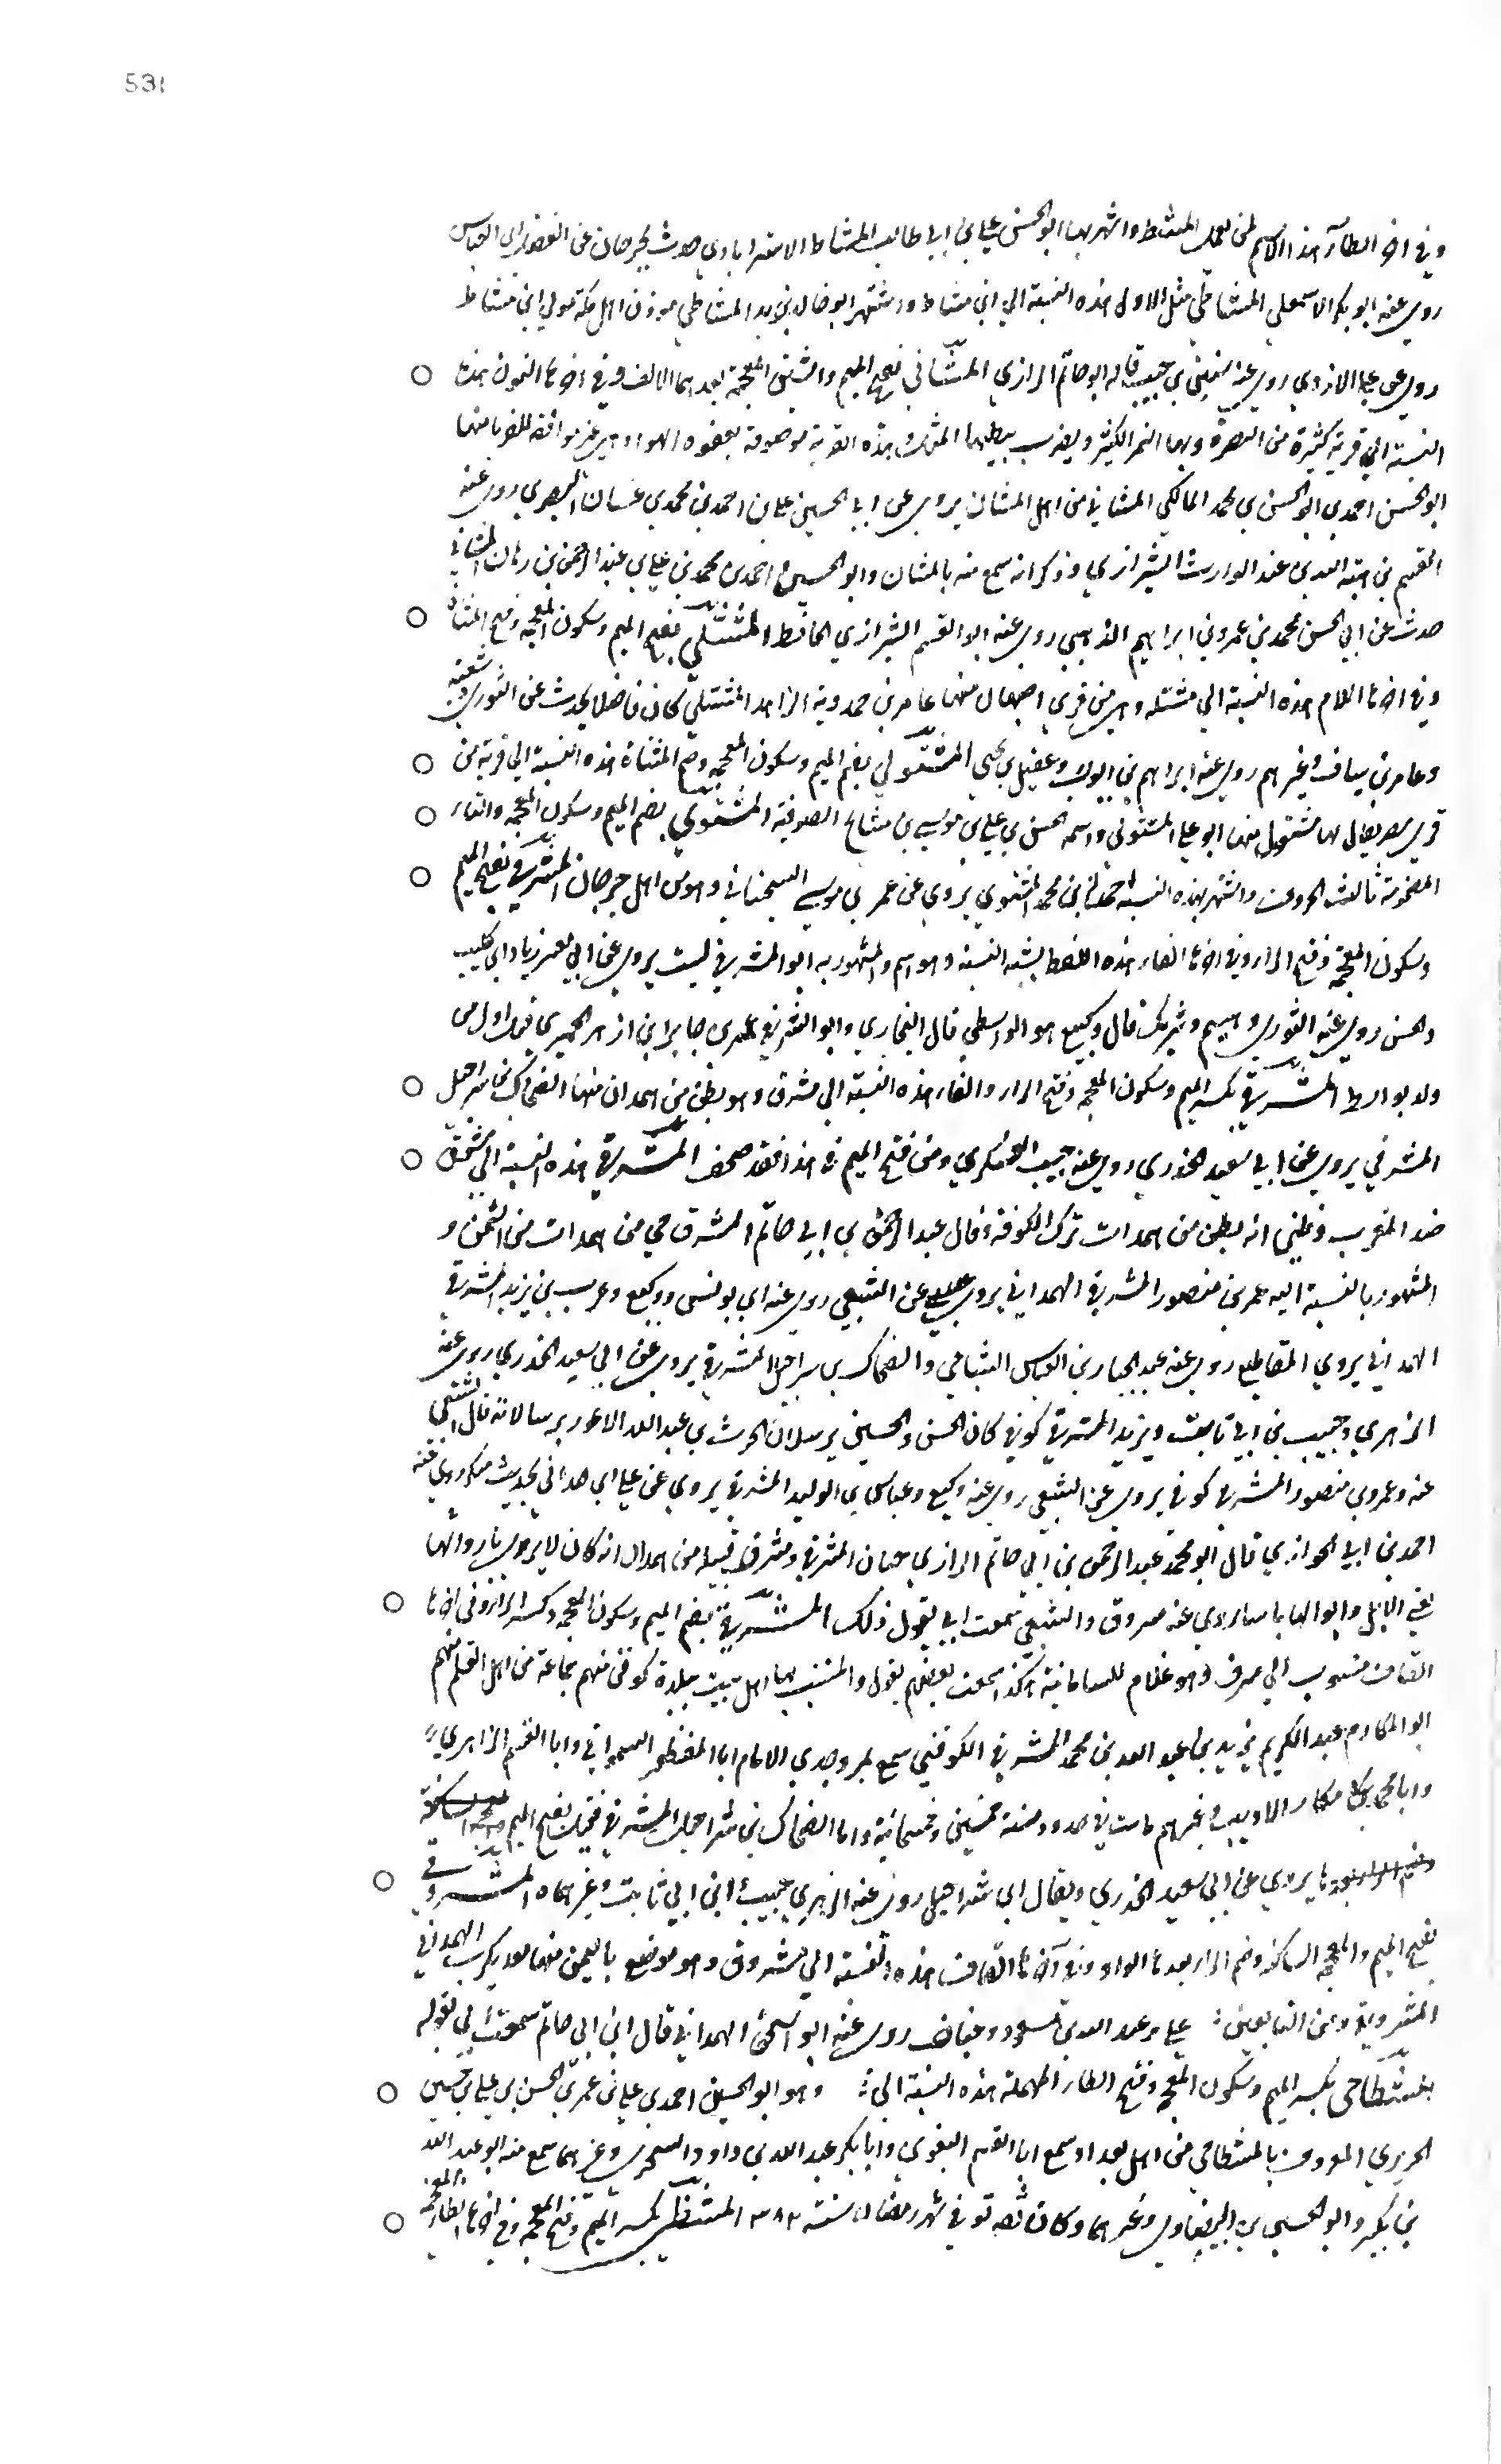 531
وفي اخر الطاء هذا الاسم لمن يعمل المشط واشتهر بها ابو الحسن علي بن ابي طالب المشاط الاستراباذي حدث بجرجان عن الفضل بن العباس
روى عنه ابو بكر الاسمعيلي المشاطي مثل الاول هذه النسبة الي ابن مشاط واشتهر ابو خالد بن يزيد المشاطي موذن اهل مكة مولي ابن مشاط
روى عن علي الازدي روى عنه سفين بن حبيب قاله ابو حاتم الرازي المشاني بفتح الميم والشين المعجمة بعدهما الالف وفي اخرها النون هذه
النسبة الي قرية كثيرة من البصرة وبها التمر الكثير ويضرب برطبها المثل وهذه القرية موصوفة بعفونة الهواء غير موافقة للغربا منها
ابو الحسن احمد بن ابو الحسن بن محمد المالكي المشاني من اهل المشان يروي عن ابي الحسين علي بن احمد بن محمد بن غسان البصري روى عنه
القسم بن هبة الله بن عبد الوارث الشيرازي وذكر انه سمع منه بالمشان وابو الحسين احمد بن محمد بن علي بن عبد الرحمن بن ريان المشاني
حدث عن ابي الحسن محمد بن عمرو بن ابراهيم الذهبي روى عنه ابو القسم الشيرازي الحافظ المشتلي بفتح الميم وسكون المعجمة وفتح المثناة
وفي اخرها اللام هذه النسبة الي مشتله وهي من قرى اصبهان منها عامر بن حمدوية الزاهد المشتلي كان فاضلا يحدث عن الثوري وشعبة
وعامر بن يساف وغيرهم روى عنه ابراهيم بن ايوب وعقيل بن يحيي المشتولي بضم الميم وسكون المعجمة وضم المثناة هذه النسبة الي قرية من
قرى مصر يقال لها مشتول منها ابو علي المشتولي واسمه الحسن بن علي بن موسي من مشايخ الصوفية المشتوي بضم الميم وسكون المعجمة والتاء
المضمومة ثالث الحروف واشتهر بهذه النسبة احمد بن محمد المشتوي يروي عن عمر بن موسي السختياني وهو من اهل جرجان المشرفي بفتح الميم
وسكون المعجمة وفتح الراء وفي اخرها الفاء هذه اللفظة يشبه النسبة وهو اسم والمشهور به ابو المشرفي ليث يروي عن ابي معشر زياد بن كليب
والحسن روى عنه الثوري وهشيم وشريك قال وكيع هو الواسطي قال البخاري وابو المشرفي عمرو بن جابر ابن ازهر الحميري فهو اول من
ولد بواسط المشرفي بكسر الميم وسكون المعجمة وفتح الراء والفاء هذه النسبة الي مشرف وهو بطن من همدان منها الضحاك بن شراحيل
المشرفي يروي عن ابي سعيد الخدري روى عنه حبيب العسكري ومن فتح الميم في هذا فقد صحف المشرقي هذه النسبة الي مشرق
ضد المغرب وظني انه بطن من همدان نزل الكوفة وقال عبد الرحمن بن ابي حاتم المشرق حي من همدان من اليمن و
المشهور بالنسبة اليه عمر بن منصور المشرقي الهمداني يروي عن الشعبي روى عنه ابن يونس ووكيع وعريب بن يزيد المشرقي
الهمداني يروي المقاطيع روى عنه عبد الجبار بن العباس الشبامي والضحاك بن شراحيل المشرقي يروي عن ابي سعيد الخدري روى عنه
الزهري وحبيب بن ابي ثابت ويزيد المشرقي كوفي كان الحسن والحسين يرسلان الحرث بن عبد الله الاعور يرسالانه قال الشعبي
عنه وعمرو بن منصور المشرقي كوفي يروي عن الشعبي روى عنه وكيع وعباس بن الوليد المشرقي يروي عن علي بن المديني بحديث منكر روى عنه
احمد بن ابي الحواري قال ابو محمد عبد الرحمن بن ابي حاتم الرازي حسان المشرقي ومشرق قبيله من همدان انه كان لا يرى باسا بروثها
يعني الابل وابوالها باسا روي عنه مسروق والشعبي سمعت ابي يقول ذلك المشرقي بضم الميم وسكون المعجمة وكسر الراء وفي اخرها
القاف منسوب الي مشرق وهو غلام للسامانية هكذا سمعت بعضهم يقول والمنتسب بها اهل بيت ببلدة كوفن منهم جماعة من اهل العلم منهم
ابو المكارم عبد الكريم بن عبد الله بن محمد المشرقي الكوفني سمع بمرو جدي الامام ابا المظفر السمعاني وابا القسم الزاهري
الاديب وغيرهم مات في حدود سنة خمسين وخمسمائة واما الضحاك بن شراحيل المشرقي بفتح الميم
يروي عن ابي سعيد الخدري ويقال ابن شراحيل روى عنه الزهري وحبيب ابن ابي ثابت وغيرهما المشروقي
بفتح الميم والمعجمة الساكنة وضم الراء بعدها الواو وفي آخرها القاف هذه النسبة الي مشروق وهو موضع باليمن منها معدي كرب الهمداني
المشروقي ومن التابعين علي وعبد الله بن مسعود وخباب روى عنه ابو اسحق الهمداني قال ابن ابي حاتم سمعت ابي يقوله
المشطاحي بكسر الميم وسكون المعجمة وفتح الطاء المهملة هذه النسبة الي وهو ابو الحسين احمد بن علي بن عمر بن الحسن بن علي بن حسين
الحريري المعروف بالمشطاحي من اهل بغداد سمع ابا القسم البغوي وابا بكر عبد الله بن داود السجزي وغيرهما سمع منه ابو عبد الله
بن بكير وابو الحسين بن البيضاوي وغيرهما وكان ثقة توفي في شهر رمضان سنة ٣٨٣ المشظي بكسر الميم وفتح المعجمة وفي اخرها الظاء المعجمة